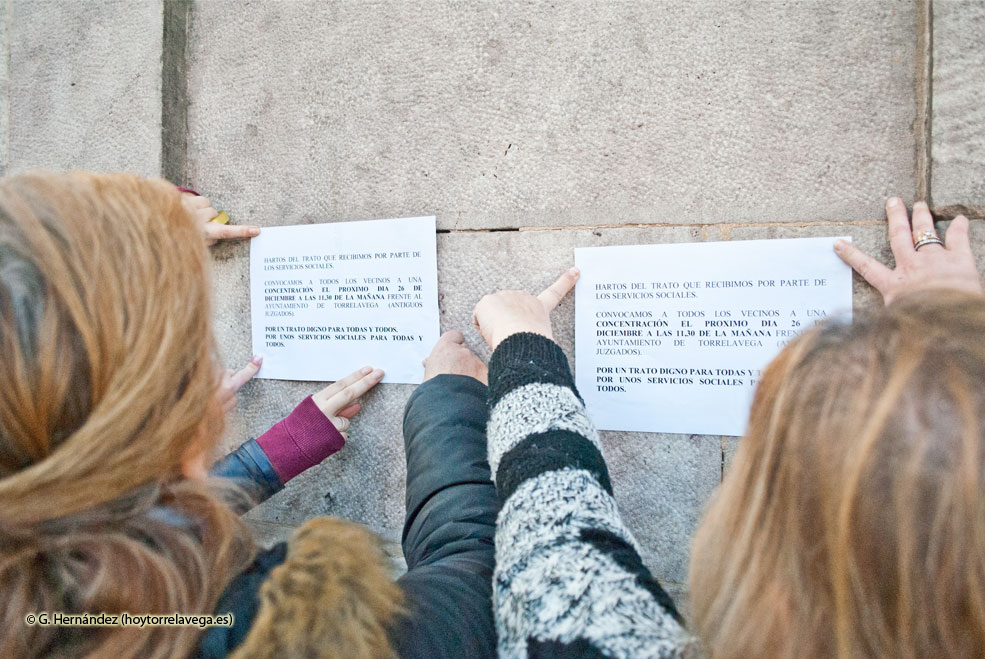 HARTOS DEL TRATO QUE RECIBIMOS POR PARTE DE
LOS SERVICIOS SOCIALES.
CONVOCAMOS A TODOS LOS VECINOS A UNA
CONCENTRACIÓN EL PROXIMO DIA 26 DE
DICIEMBRE A LAS 11,30 DE LA MAÑANA FRENTE AL
AYUNTAMIENTO DE TORRELAVEGA (ANTIGUOS
JUZGADOS).
POR UN TRATO DIGNO PARA TODAS Y TODOS.
POR UNOS SERVICIOS SOCIALES PARA TODAS Y
TODOS.
HARTOS DEL TRATO QUE RECIBIMOS POR PARTE DE
LOS SERVICIOS SOCIALES.
CONVOCAMOS A TODOS LOS VECINOS A UNA
CONCENTRACIÓN EL PROXIMO DIA 26
DICIEMBRE A LAS 11,30 DE LA MAÑANA
AYUNTAMIENTO DE TORRELAVEGA
JUZGADOS).
POR UN TRATO DIGNO PARA TODAS Y
POR UNOS SERVICIOS SOCIALES
TODOS.
© G. Hernández (hoytorrelavega.es)